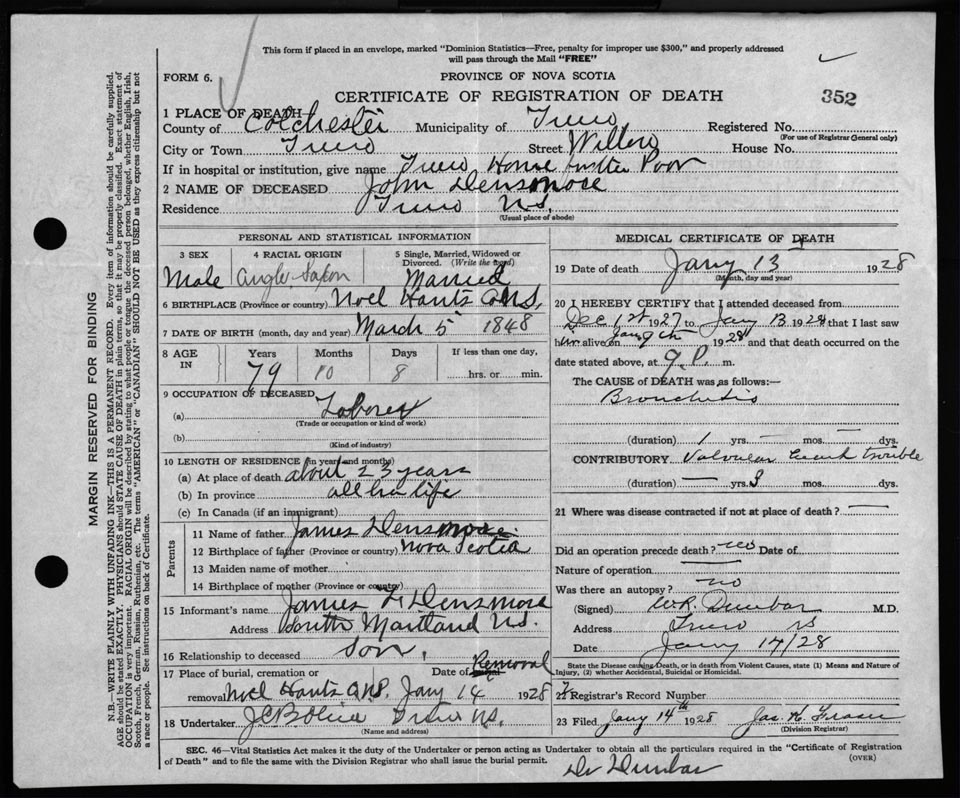 This form if placed in an envelope, marked "Dominion Statistics—Free, penalty for improper use $300," and properly addressed
will pass through the Mail "FREE"
FORM 6.
PROVINCE OF NOVA SCOTIA
CERTIFICATE OF REGISTRATION OF DEATH
352
1 PLACE OF DEATH
County of Colchester Municipality of Truro Registered No.
(For use of Registrar General only)
City or Town Truro Street Willow House No.
If in hospital or institution, give name Truro Home for the Poor
2 NAME OF DECEASED John Densmore
Residence Truro N.S.
(Usual place of abode)
PERSONAL AND STATISTICAL INFORMATION
3 SEX 4 RACIAL ORIGIN 5 Single, Married, Widowed or
Divorced. (Write the word)
Male Anglo-Saxon Married
6 BIRTHPLACE (Province or country) Noel Hants Co N.S.
7 DATE OF BIRTH (month, day and year) March 5 1848
8 AGE IN Years Months Days If less than one day,
79 10 8 hrs. or min.
9 OCCUPATION OF DECEASED
(a) Laborer
(Trade or occupation or kind of work)
(b)
(Kind of industry)
10 LENGTH OF RESIDENCE (in years and months)
(a) At place of death about 23 years
(b) In province all his life
(c) In Canada (if an immigrant)
Parents
11 Name of father James Densmore
12 Birthplace of father (Province or country) Nova Scotia
13 Maiden name of mother
14 Birthplace of mother (Province or country)
15 Informant's name James F. Densmore
Address South Maitland N.S.
16 Relationship to deceased Son.
17 Place of burial, cremation or Date of burial Removal
removal Noel Hants Jany 14 1928
18 Undertaker Truro N.S.
(Name and address)
MEDICAL CERTIFICATE OF DEATH
19 Date of death Jany 13 1928
(Month, day and year)
20 I HEREBY CERTIFY that I attended deceased from
Dec 1st 1927 to Jany 13 1928 that I last saw
him alive on Jany 9th 1928 and that death occurred on the
date stated above, at 9 P. m.
The CAUSE of DEATH was as follows:—
Bronchitis
(duration) 1 yrs. — mos. — dys.
CONTRIBUTORY Valvular heart trouble
(duration) — yrs. 3
21 Where was disease contracted if not at place of death? —
Did an operation precede death? no Date of
Nature of operation —
Was there an autopsy? no
(Signed) W.R. Dunbar M.D.
Address Truro N.S.
Date Jany 17/28
State the Disease causing Death, or in death from Violent Causes, state (1) Means and Nature of
Injury, (2) whether Accidental, Suicidal or Homicidal.
22 Registrar's Record Number
23 Filed Jany 14th 1928 Jas. H. Fraser
(Division Registrar)
SEC. 46—Vital Statistics Act makes it the duty of the Undertaker or person acting as Undertaker to obtain all the particulars required in the "Certificate of Registration
of Death" and to file the same with the Division Registrar who shall issue the burial permit.
(OVER)
Dr Dunbar
MARGIN RESERVED FOR BINDING
N.B.—WRITE PLAINLY WITH UNFADING INK—THIS IS A PERMANENT RECORD. Every item of information should be carefully supplied.
AGE should be stated EXACTLY. PHYSICIANS should STATE CAUSE OF DEATH in plain terms, so that it may be properly classified. Exact statement of
OCCUPATION is very important. RACIAL ORIGIN will be described by stating to what people or tongue the deceased person belonged, whether English, Irish,
Scotch, French, German, Russian, Ruthenian, etc. The terms "AMERICAN" or "CANADIAN" SHOULD NOT BE USED as they express citizenship but not
a race or people. See instructions on back of Certificate.